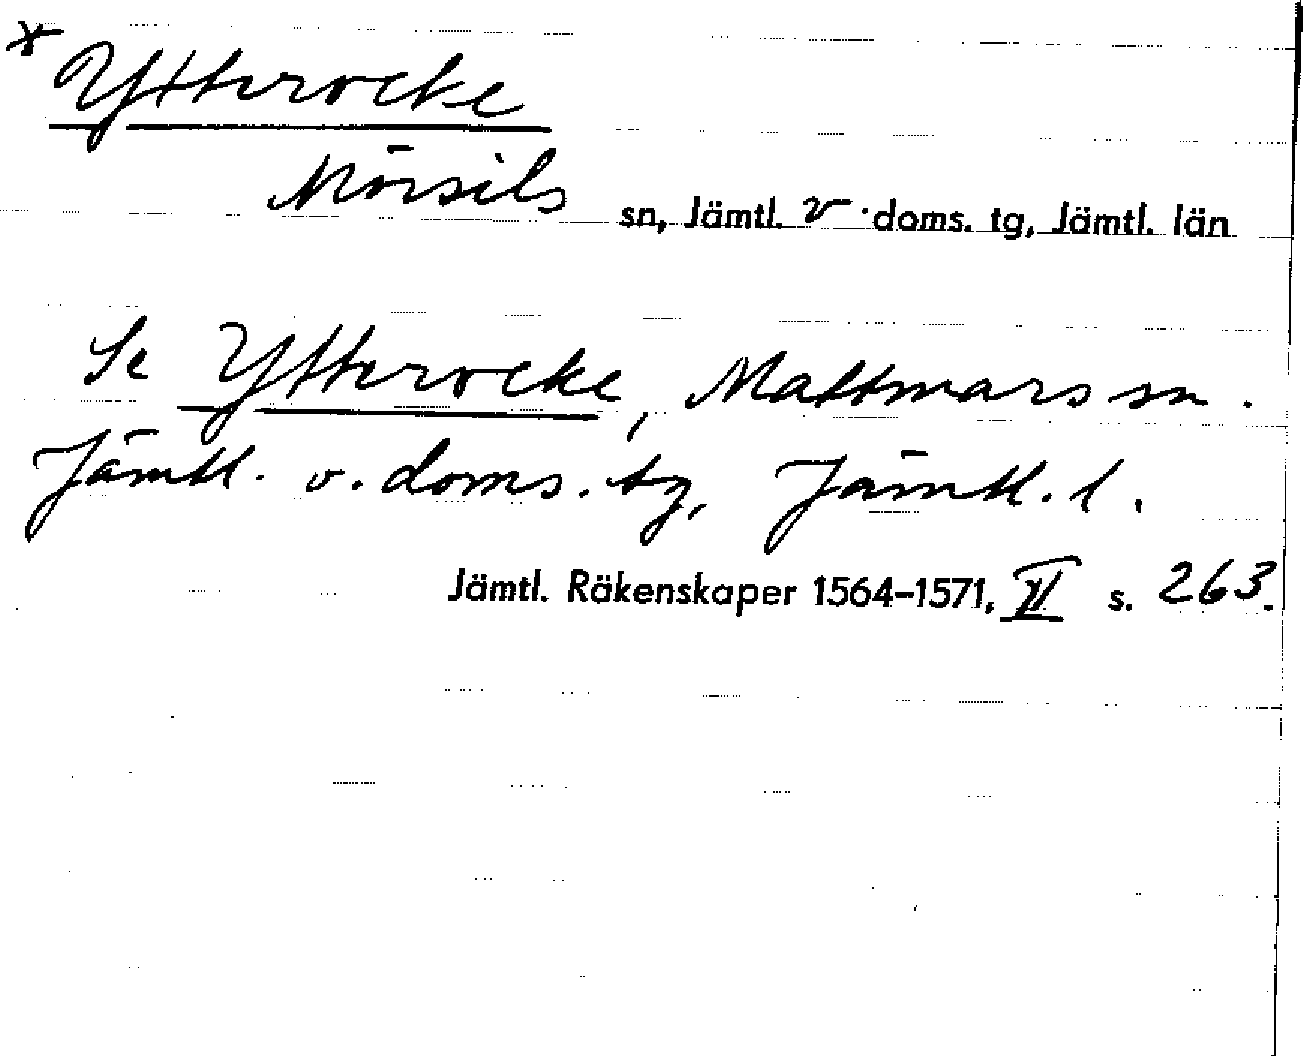 * Ytterocke
Mörsils sn, Jämtl. v. doms. tg, Jämtl. län
Se Ytterocke, Mattmars sn.
Jämtl. v. doms. tg, Jämtl. l.
Jämtl. Räkenskaper 1564–1571, II s. 263.